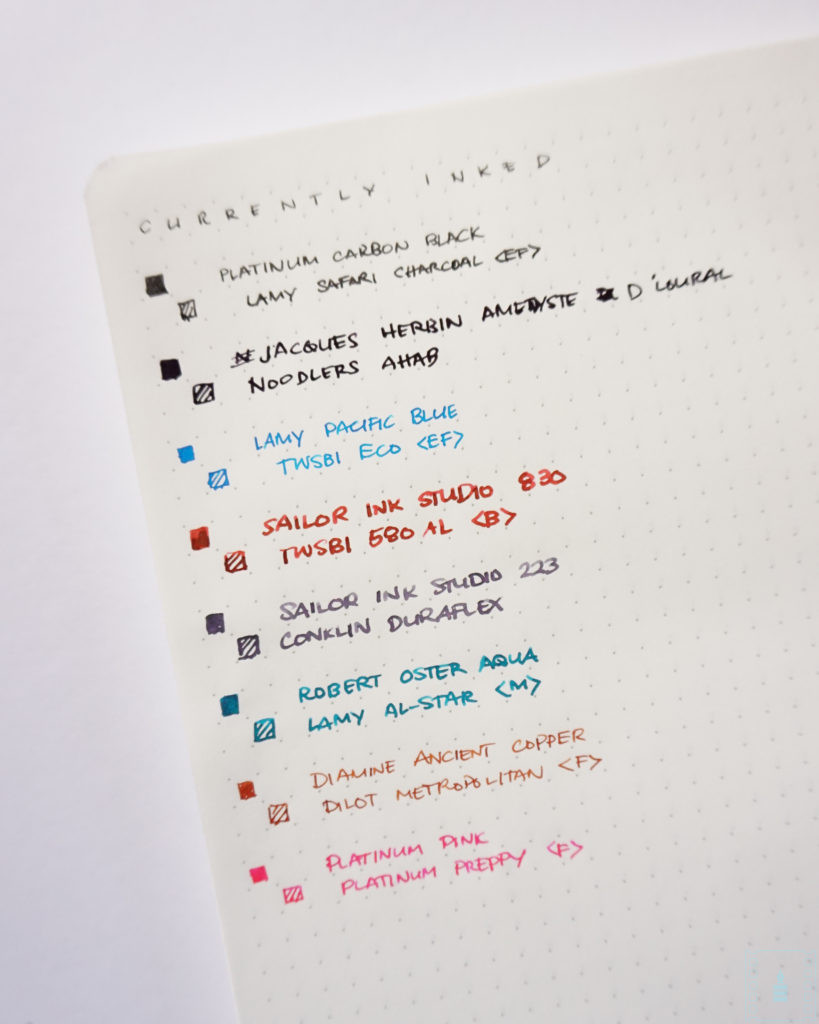 CURRENTLY INKED
PLATINUM CARBON BLACK
LAMY SAFARI CHARCOAL <EF>
JACQUES HERBIN AMETYSTE D'LOURAL
NOODLERS AHAB
LAMY PACIFIC BLUE
TWSBI ECO <EF>
SAILOR INK STUDIO 830
TWSBI 580 AL <B>
SAILOR INK STUDIO 223
CONKLIN DURAFLEX
ROBERT OSTER AQUA
LAMY AL-STAR <M>
DIAMINE ANCIENT COPPER
PILOT METROPOLITAN <F>
PLATINUM PINK
PLATINUM PREPPY <F>